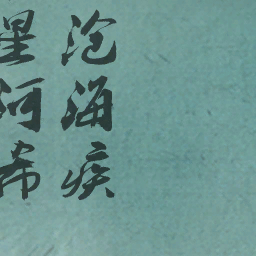 沧海疾
星河希